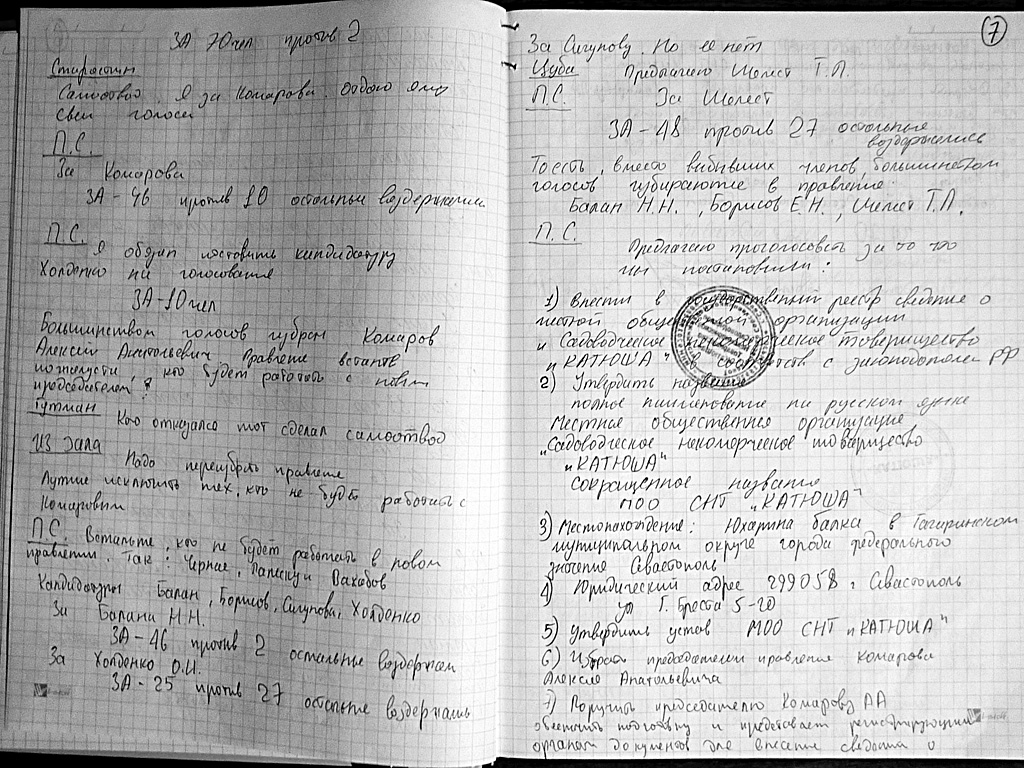 ЗА 70 чел против 2
Старостин
Самоотвод. Я за Комарова. Отдаю ему
свои голоса
П.С.
За Комарова
ЗА - 46 против 10 остальные воздержались
П.С.
Я обязан поставить кандидатуру
Холденко на голосование
ЗА - 10 чел
Большинством голосов избран Комаров
Алексей Анатольевич. Правление встаньте
пожалуста, кто будет работать с новым
председателем?
Гутман
Кто отказался тот сделал самоотвод
Из зала
Надо переизбрать правление
Лучше исключить тех, кто не будет работать с
Комаровым
П.С. Встаньте, кто не будет работать в новом
правлении. Так: Черная, и Вахабов
Кандидатуры Балан, Борисов, Сигунова, Холденко
За Балана Н.Н.
ЗА - 46 против 2 остальные воздержал
За Холденко О.И.
ЗА - 25 против 27 остальные воздержались
7
За Сигунову. Но ее нет
Цуба Предлагаю Шелест Т.Л.
П.С. За Шелест
ЗА - 48 против 27 остальные
воздержались
Тоесть, вместо выбывших членов, большинством
голосов избираются в правление
Балан Н.Н., Борисов Е.Н., Шелест Т.Л.
П.С.
Предлагаю проголосовать за то что
мы постановили:
1) Внести в государственный реестр сведение о
местной общественной организации
"Садоводческое некомерческое товарищество
"КАТЮША" с законодател РФ
2) Утвердить название
полное наименование на русском языке
Местное общественное организацие
"Садоводческое некомерческое товарищество
"КАТЮША"
сокращенное название
МОО СНТ "КАТЮША"
3) Местонахождение: Юхарина балка в Гагаринском
муниципальном округе города федерального
значение Севастополь
4) Юридический адрес 299058 г Севастополь
ул Г. Бреста 5-20
5) Утвердить устав МОО СНТ "КАТЮША"
6) Избрать председателем правление Комарова
Алексея Анатольевича
7) Поручить председателю Комарову АА
обеспечить подготовку и представлен регистрирующим
органам документов для внесение сведения о